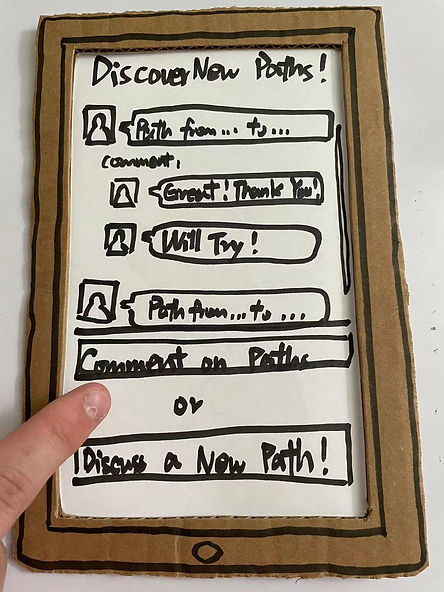 Discover New Paths!
Path from... to...
comment,
Great! Thank You!
Will Try!
Path from... to...
Comment on Paths
or
Discuss a New Path!